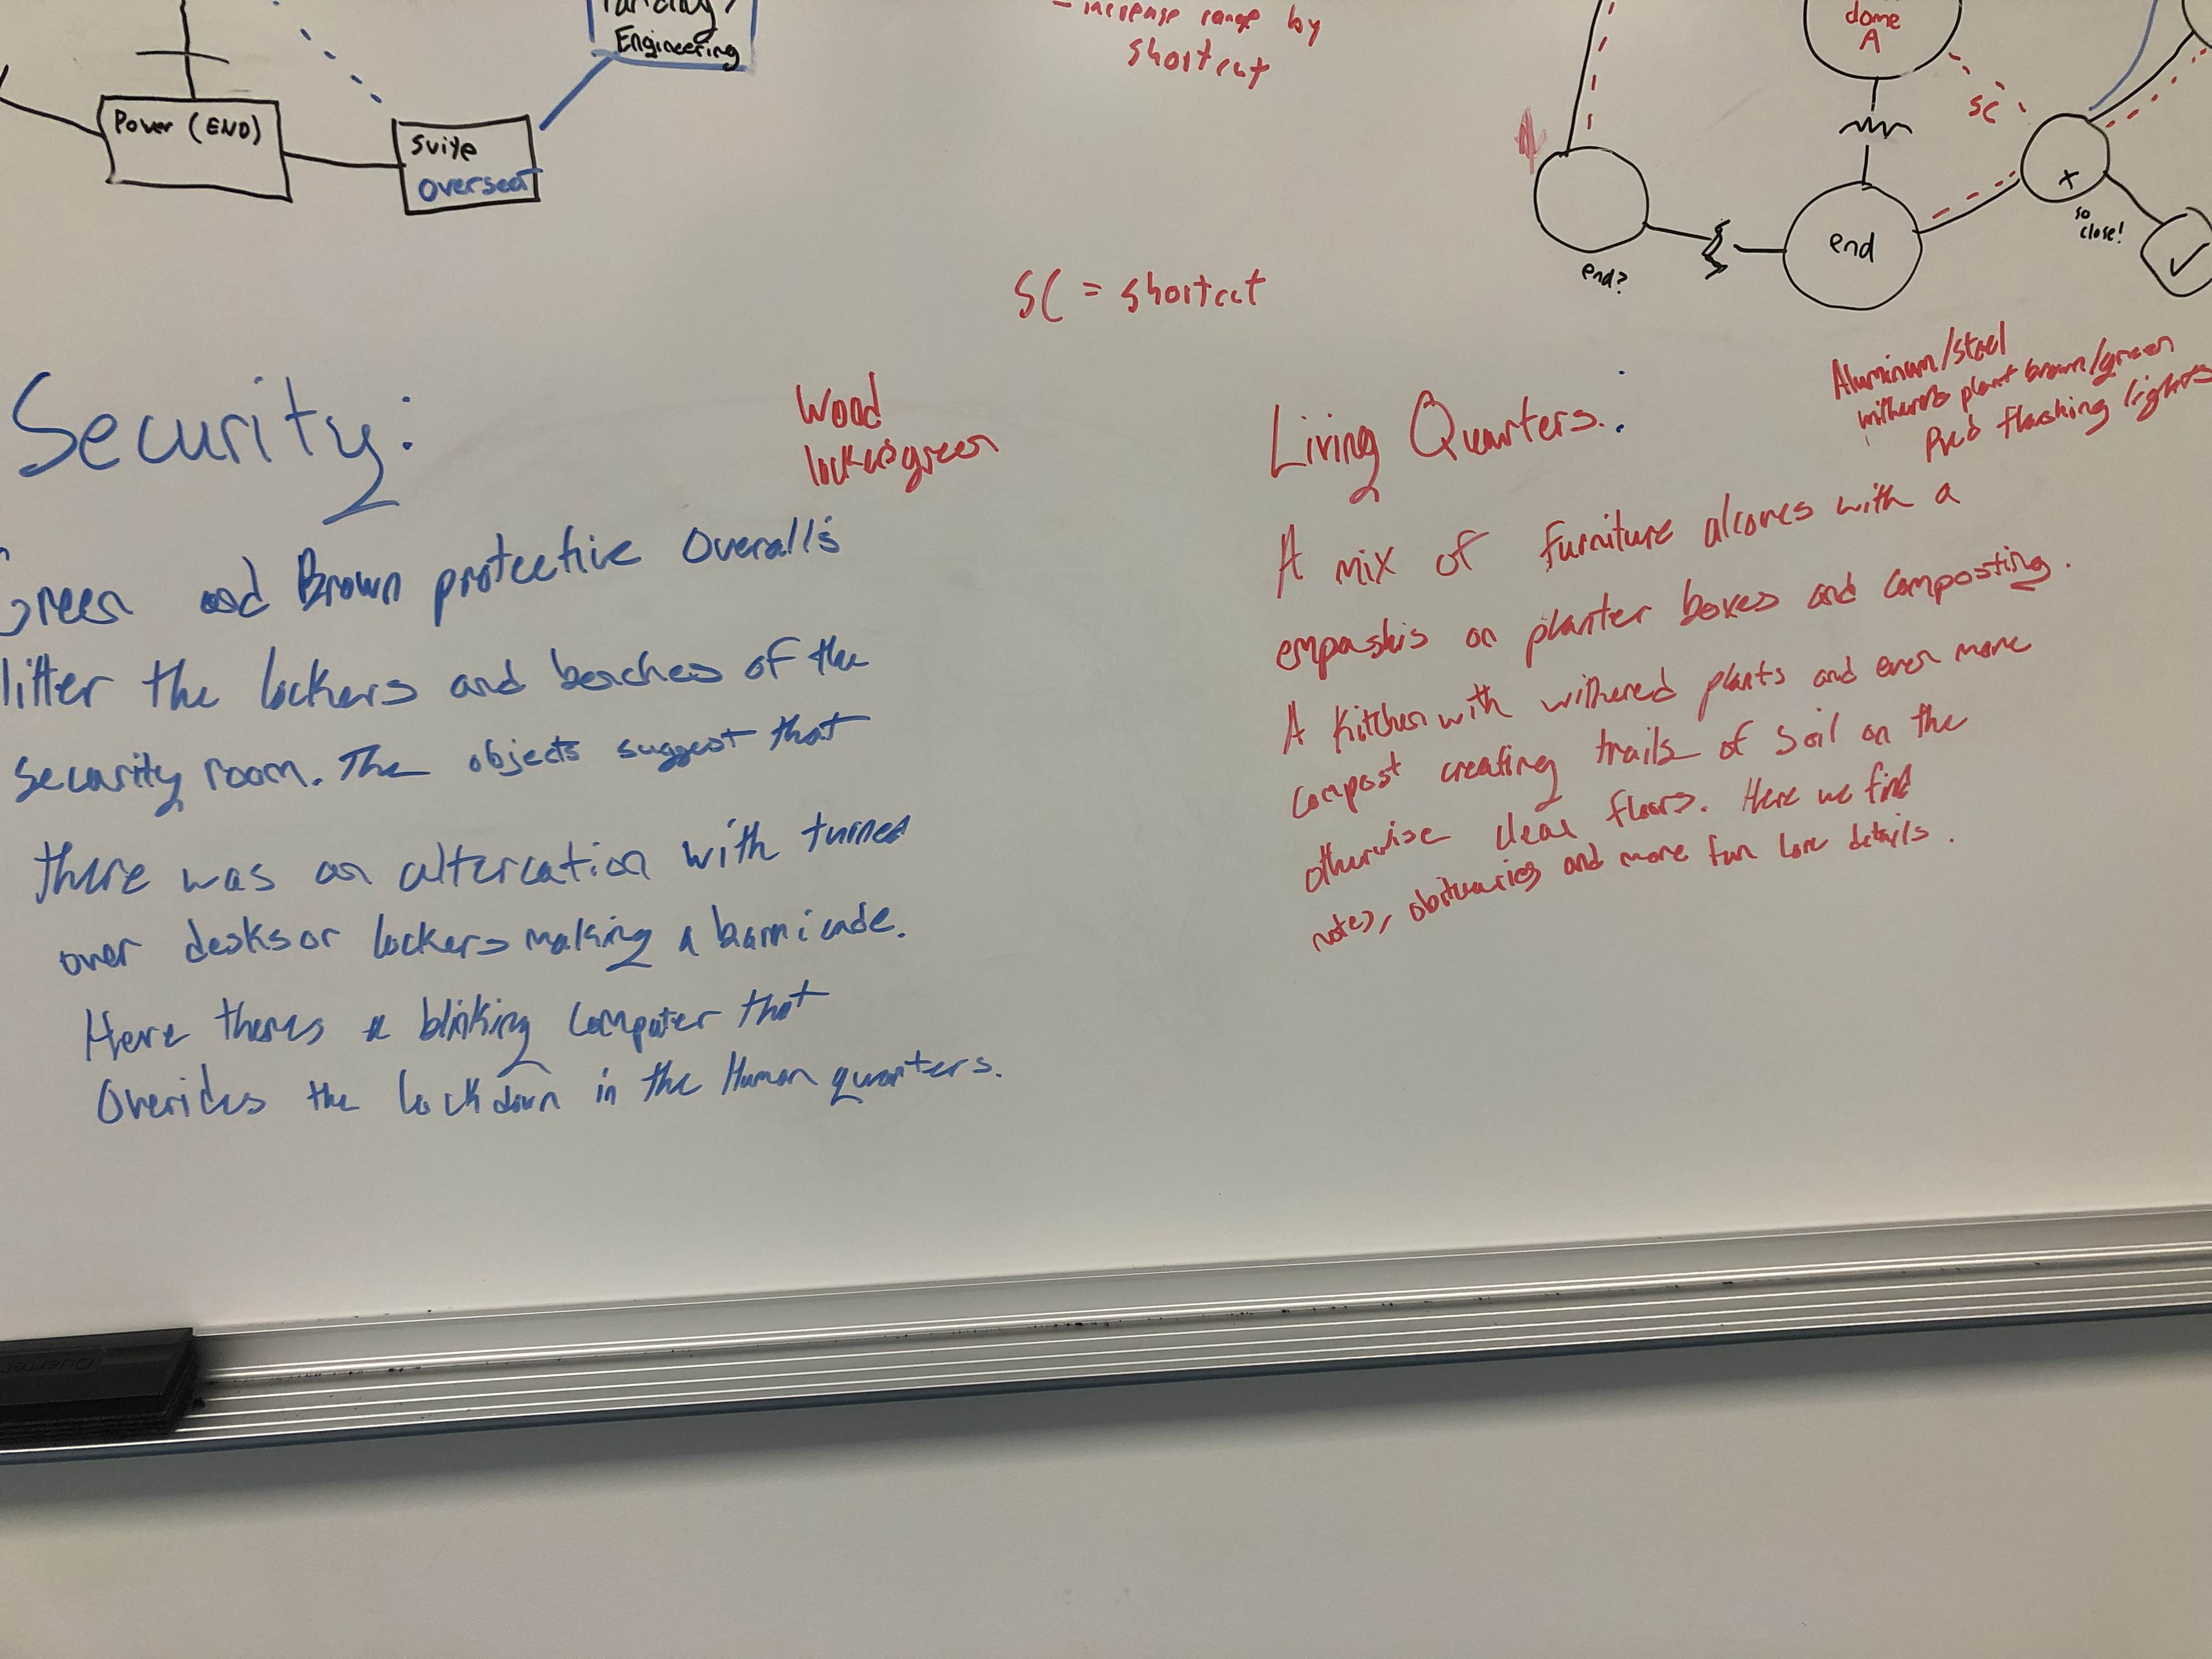 Engineering
Power (END)
Suite
Overseat
- increase range by
shortcut
dome
A
SC
x
so
close!
end
end?
SC = shortcut
Security:
Wood
lockers green
Green and Brown protective Overalls
litter the lockers and benches of the
security room. The objects suggest that
there was an altercation with turned
over desks or lockers making a barricade.
Here theres a blinking computer that
Overides the lockdown in the Human quarters.
Living Quarters:
Aluminum/steel
plant brown/green
Red flashing lights
A mix of furniture alcoves with a
empashis on planter boxes and composting.
A Kitchen with withered plants and even more
compost creating trails of soil on the
otherwise clean floors. Here we find
notes, obituaries and more fun lore details.